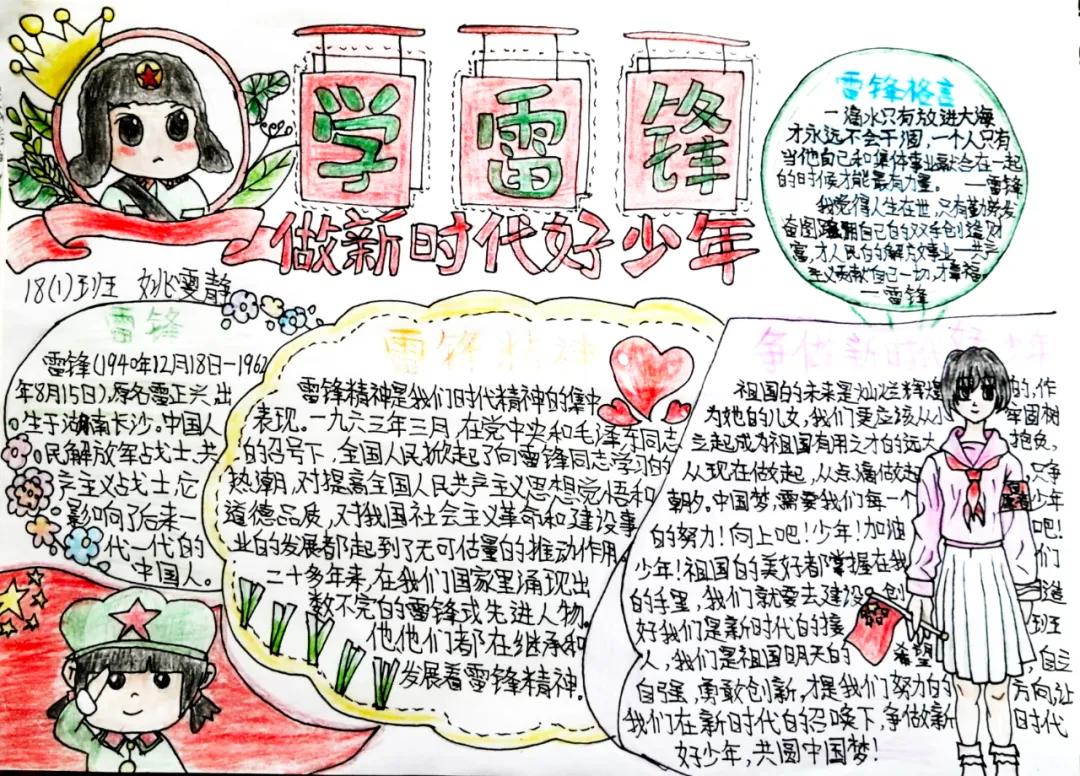 学雷锋
做新时代好少年
18(1)班 姚雯静
雷锋格言
一滴水只有放进大海
才永远不会干涸，一个人只有
当他自己和集体事业融合在一起
的时候才能最有力量。 —雷锋
我觉得人生在世，只有勤劳发
奋图强用自己的双手创造财
富，才人民的解放事业—共产
主义贡献自己一切，才幸福。
—雷锋
雷锋
雷锋(1940年12月18日-1962
年8月15日)，原名雷正兴，出
生于湖南长沙。中国人
民解放军战士，共
产主义战士，它
影响了后来一
代一代的
中国人。
雷锋精神
雷锋精神是我们时代精神的集中
表现。一九六三年三月，在党中央和毛泽东同志
的召号下，全国人民掀起了向雷锋同志学习的
热潮，对提高全国人民共产主义思想觉悟和
道德品质，对我国社会主义革命和建设事
业的发展都起到了无可估量的推动作用。
二十多年来，在我们国家里涌现出
数不完的雷锋式先进人物。
他他们都在继承和
发展着雷锋精神。
争做新时代好少年
祖国的未来是灿烂辉煌的，作
为她的儿女，我们更应该从小牢固树
立起成为祖国有用之才的远大抱负，
从现在做起，从点滴做起只争
朝夕。中国梦，需要我们每一个少年
的努力！向上吧！少年！加油吧！
少年！祖国的美好都掌握在我们
的手里，我们就要去建设创造
好我们是新时代的接班
人，我们是祖国明天的希望，自立
自强，勇敢创新，才是我们努力的方向，让
我们在新时代的召唤下，争做新时代
好少年，共圆中国梦！